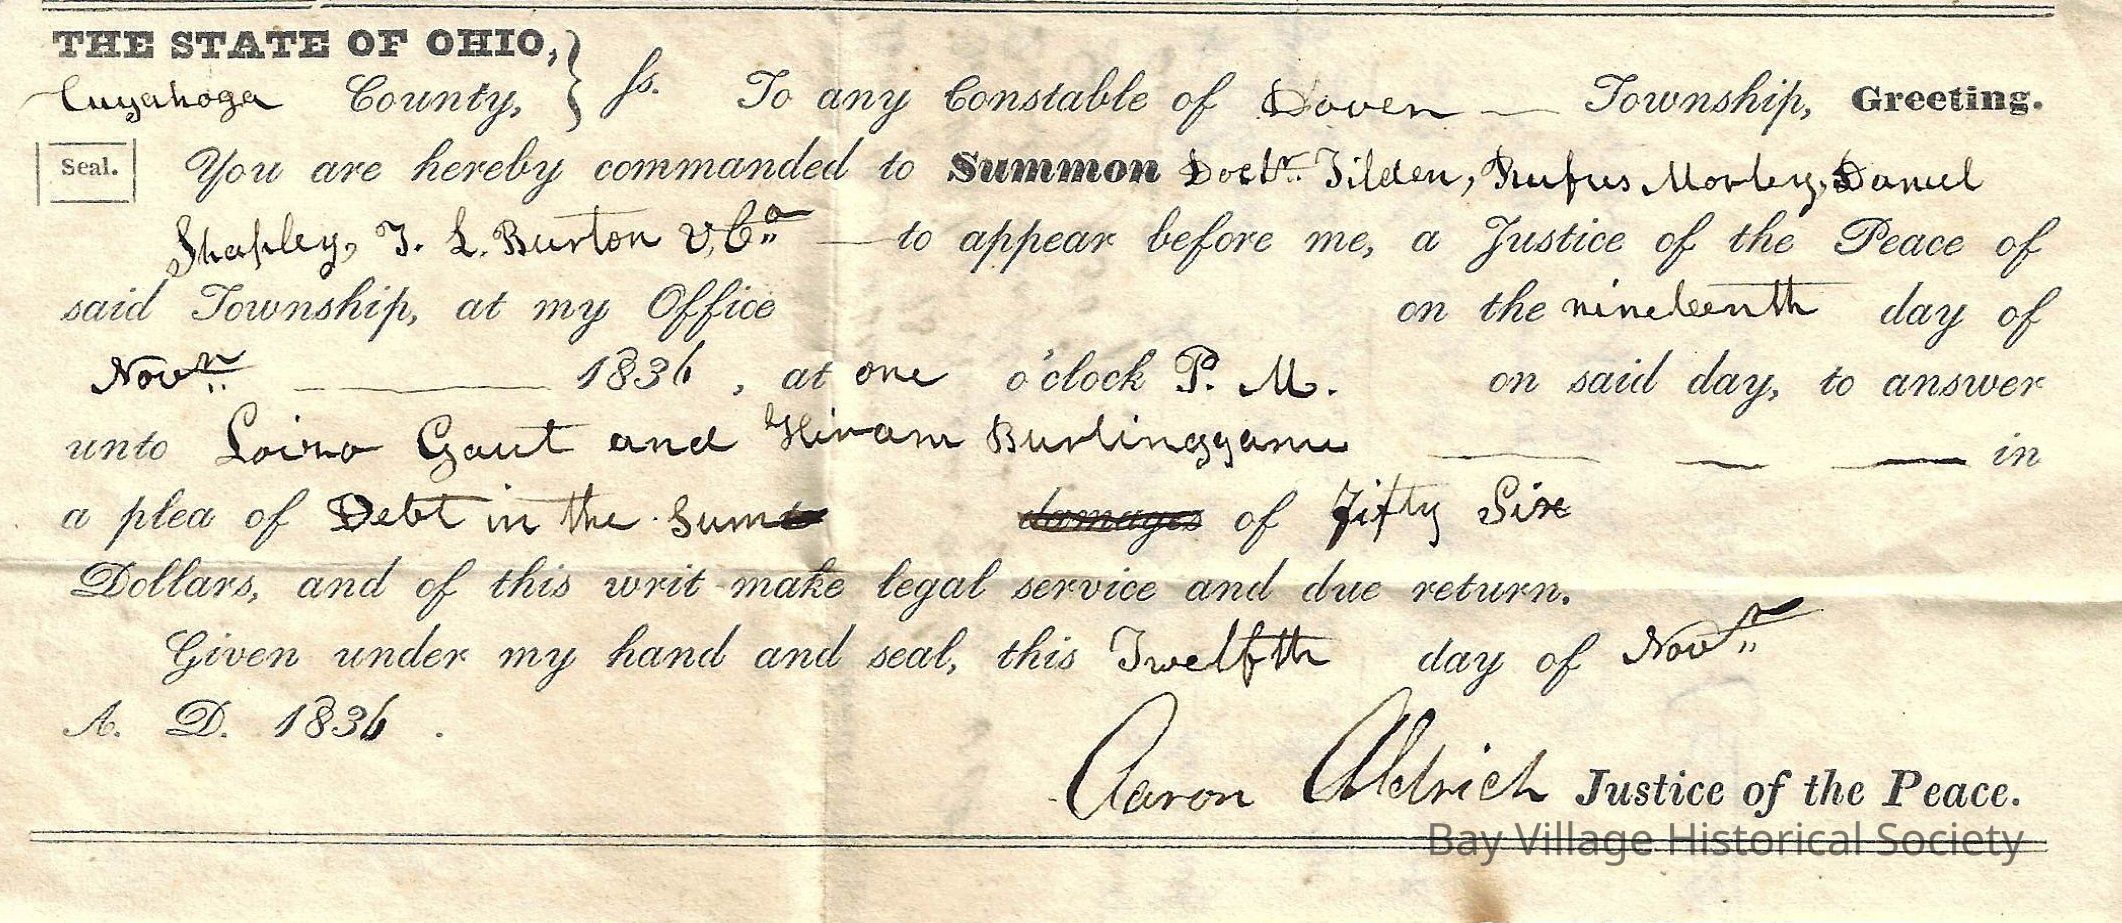 THE STATE OF OHIO, }
Cuyahoga County, } ss. To any Constable of Dover Township, Greeting.
Seal. You are hereby commanded to Summon Doctr. Tilden, Rufus Morley, Daniel
Shapley, T. L. Burton & Co. to appear before me, a Justice of the Peace of
said Township, at my Office on the nineteenth day of
Novr. 1836, at one o'clock P. M. on said day, to answer
unto Gaut and Hiram Burlinggame in
a plea of Debt in the Sum damages of Fifty Six
Dollars, and of this writ make legal service and due return.
Given under my hand and seal, this Twelfth day of Novr.
A. D. 1836.
Aaron Aldrich Justice of the Peace.
Bay Village Historical Society